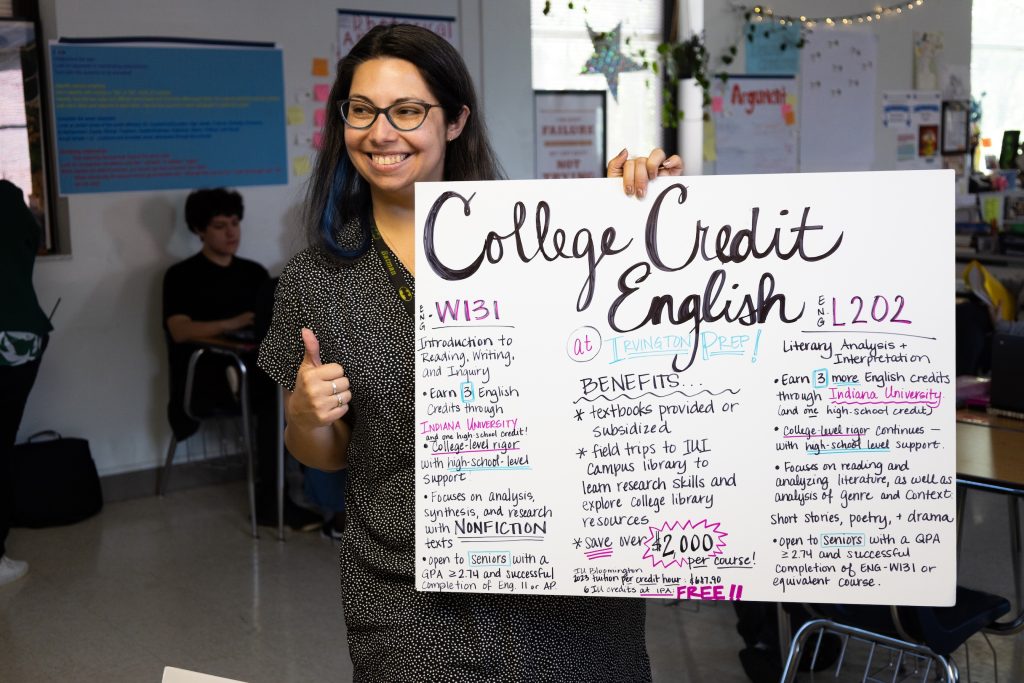 College Credit
English
at IRVINGTON PREP!
ENG-W131
Introduction to
Reading, Writing,
and Inquiry
• Earn 3 English
Credits through
INDIANA UNIVERSITY
and one high-school credit!
• College-level rigor
with high-school-level
support.
• Focuses on analysis,
synthesis, and research
with NONFICTION
texts
• open to seniors with a
GPA ≥ 2.74 and successful
completion of Eng. 11 or AP.
BENEFITS...
* textbooks provided or
subsidized
* field trips to IUI
campus library to
learn research skills and
explore college library
resources
* save over $2,000
per course!
IU Bloomington
2023 tuition per credit hour: $687.90
6 IU credits at IPA: FREE!!
ENG-L202
Literary Analysis +
Interpretation
• Earn 3 more English credits
through Indiana University.
(and one high-school credit)
• College-level rigor continues —
with high-school level support.
• Focuses on reading and
analyzing literature, as well as
analysis of genre and context.
short stories, poetry, + drama
• open to seniors with a GPA
≥ 2.74 and successful
completion of ENG-W131 or
equivalent course.
FAILURE
NOT
TRYING
Argument